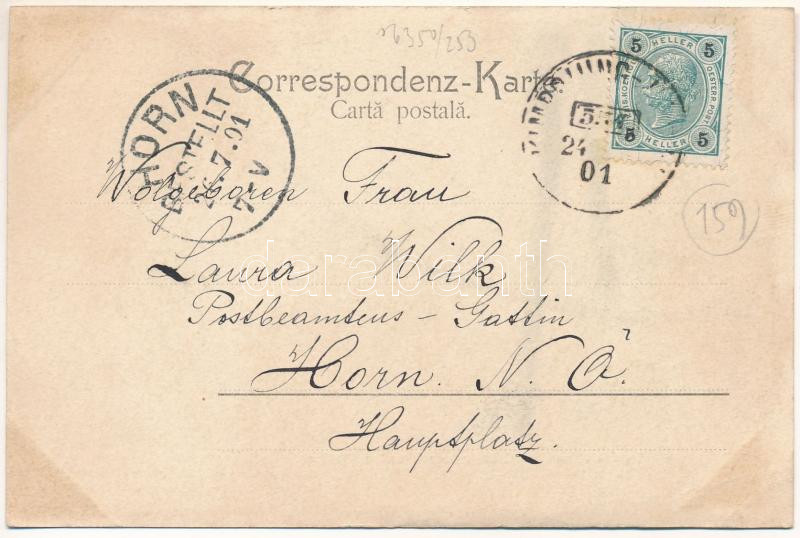 26350/253
Correspondenz-Karte
Cartă postală.
HORN
BESTELLT
7.01
7 V
KIMPOLUNG
24
01
5 HELLER 5
5 HELLER 5
159
Wolgeboren Frau
Laura Wilk
Postbeamtens - Gattin
Horn. N. Ö.
Hauptplatz.
darabanth